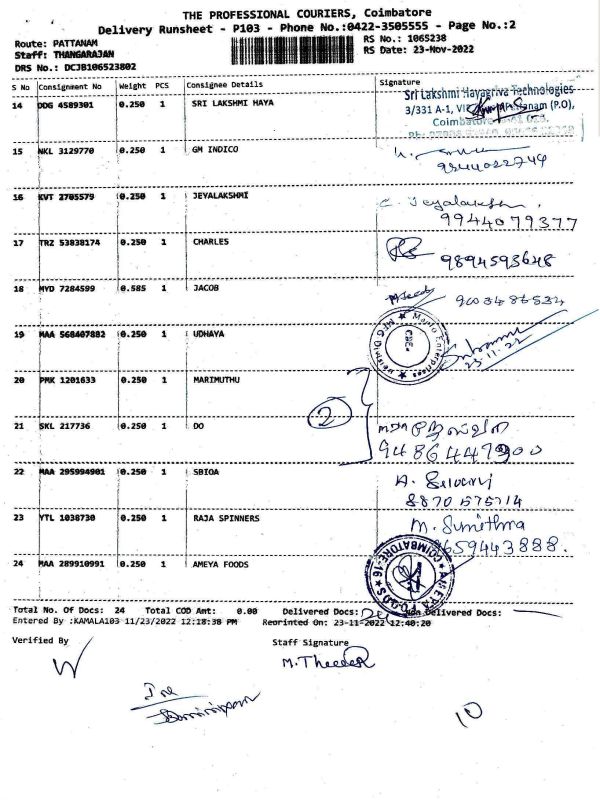 THE PROFESSIONAL COURIERS, Coimbatore
Delivery Runsheet - P103 - Phone No.:0422-3505555 - Page No.:2
Route: PATTANAM RS No.: 1065238
Staff: THANGARAJAN RS Date: 23-Nov-2022
DRS No.: DCJB106523802
S No Consignment No Weight PCS Consignee Details Signature
14 DDG 4589301 0.250 1 SRI LAKSHMI HAYA Sri Lakshmi Hayagriva Technologies
3/331 A-1, Pattanam (P.O),
Coimbatore
15 NKL 3129770 0.250 1 GM INDICO
9244022749
16 KVT 2705579 0.250 1 JEYALAKSHMI C. Jeyalakshmi
9944079377
17 TRZ 53838174 0.250 1 CHARLES 9894593648
18 MYD 7284599 0.585 1 JACOB 9003486532
19 MAA 568407882 0.250 1 UDHAYA Enterprises
23-11-22
20 PMK 1201633 0.250 1 MARIMUTHU
2
21 SKL 217736 0.250 1 DO
9486447900
22 MAA 295994901 0.250 1 SBIOA
8870575714
23 YTL 1038730 0.250 1 RAJA SPINNERS M. Sunithra
8659443888.
24 MAA 289910991 0.250 1 AMEYA FOODS COIMBATORE-16 FOODS
Total No. Of Docs: 24 Total COD Amt: 0.00 Delivered Docs: Non Delivered Docs:
Entered By :KAMALA103 11/23/2022 12:18:38 PM Reprinted On: 23-11-2022 12:40:20
Verified By Staff Signature
10